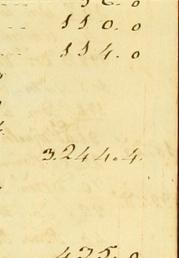 110.0
114.0
3.244.4.
435.0